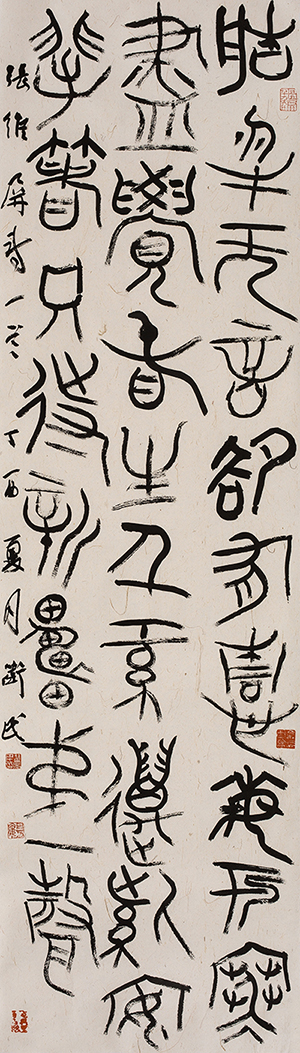 造物无言卻有情每于寒
盡覺春生千紅萬紫安
排箸只待新雷弟一聲
張維屏詩一首 丁酉夏月